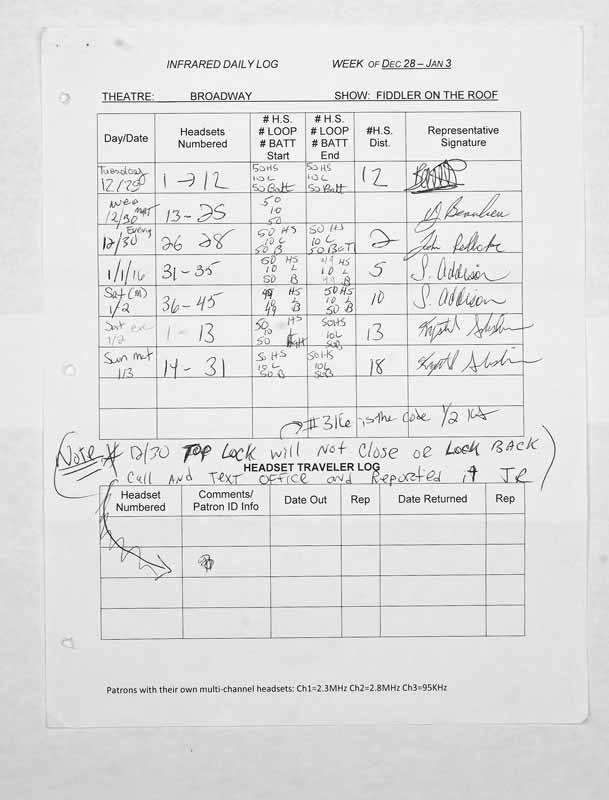 INFRARED DAILY LOG WEEK OF DEC 28 – JAN 3
THEATRE: BROADWAY SHOW: FIDDLER ON THE ROOF
Day/Date Headsets Numbered # H.S. # LOOP # BATT Start # H.S. # LOOP # BATT End #H.S. Dist. Representative Signature
Tuesday 12/29 1 → 12 50 HS 10 L 50 Batt 50 HS 10 L 50 Batt 12
Wed mat 12/30 13 - 25 50 10 50
Evening 12/30 26 28 50 HS 10 L 50 B 50 HS 10 L 50 BATT 2
1/1/16 31-35 50 HS 10 L 50 B 49 HS 10 L 49 B 5 S. Addison
Sat (m) 1/2 36-45 49 HS 10 L 49 B 50 HS 10 L 50 B 10 S. Addison
Sat eve 1/2 1 - 13 50 HS 10 50 Batt 50HS 10L 50B 13
Sun mat 1/3 14 - 31 50 HS 10 L 50 B 50 HS 10L 50B 18
is the code 1/2
Note # 12/30 Top Lock will Not Close or Lock BACK
Call AND TEXT OFFICE and Reported it JR
HEADSET TRAVELER LOG
Headset Numbered Comments/ Patron ID Info Date Out Rep Date Returned Rep
Patrons with their own multi-channel headsets: Ch1=2.3MHz Ch2=2.8MHz Ch3=95KHz